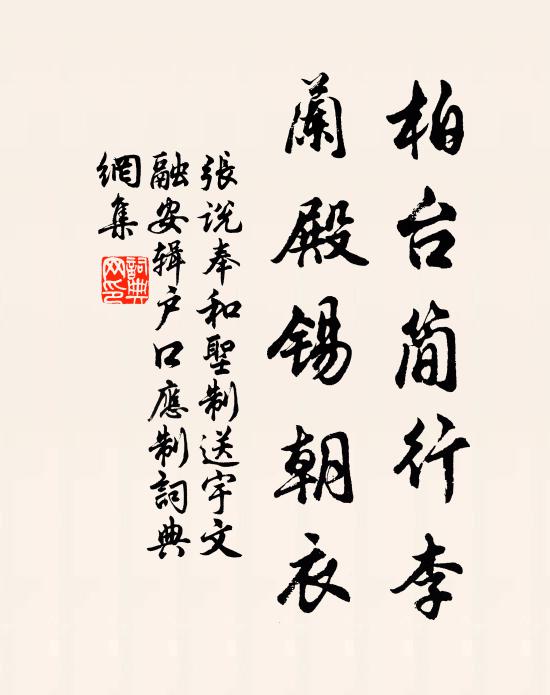 柏台简行李
蘭殿锡朝衣
張说奉和聖制送宇文
融安辑户口應制詞典
網集
詞典网印